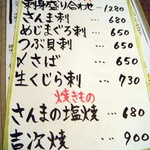 刺身盛り合わせ -1280
さんま刺 -680
めじまぐろ刺 -650
つぶ貝刺 -650
〆さば -650
生くじら刺 -730
焼きもの
さんまの塩焼 -680
吉次焼 -900